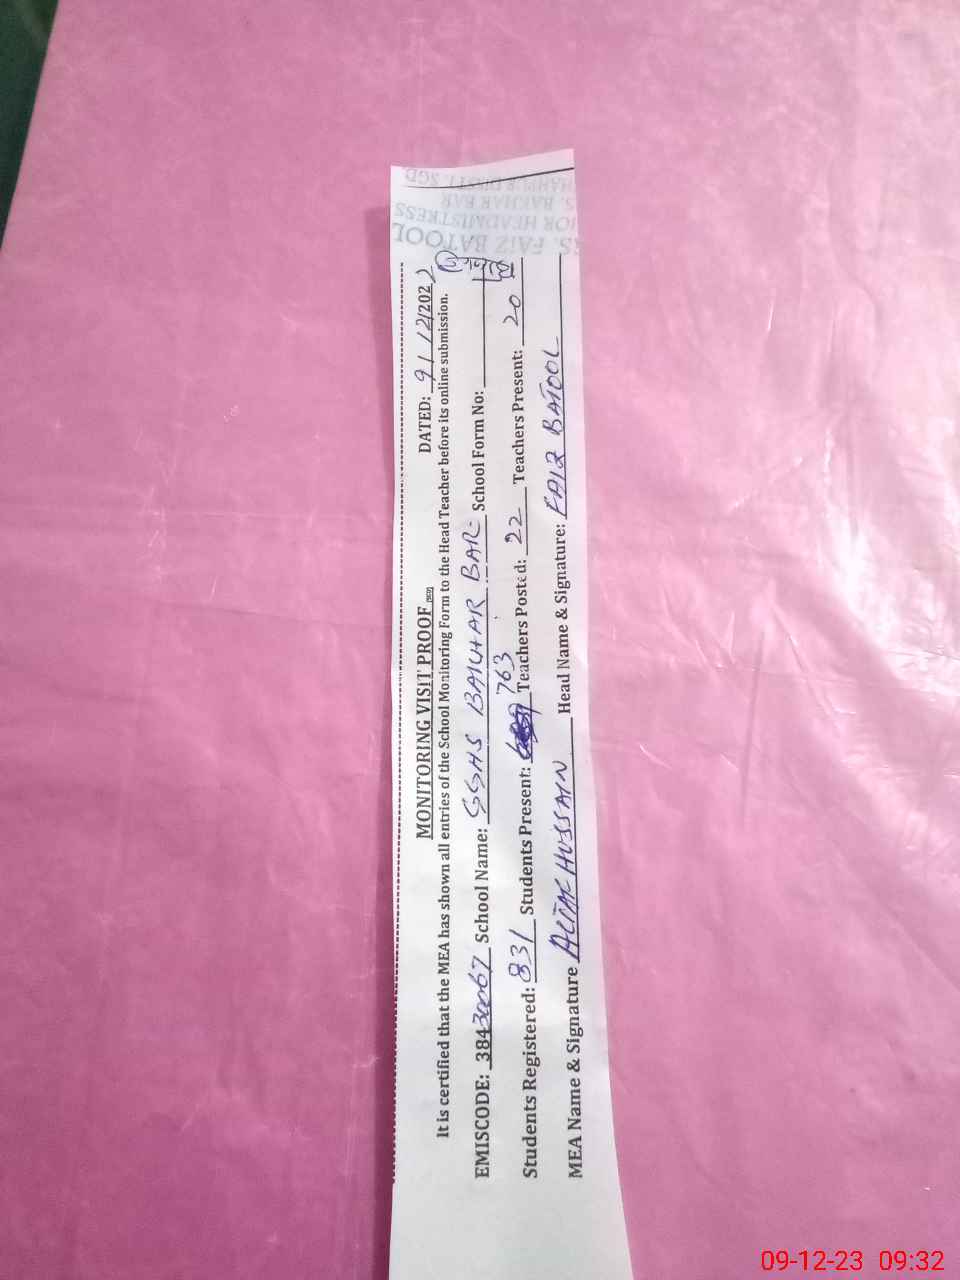 MONITORING VISIT PROOF
DATED: 9/12/202
It is certified that the MEA has shown all entries of the School Monitoring Form to the Head Teacher before its online submission.
EMISCODE: 38430067 School Name: GGHS BAKHAR BAR School Form No:
Students Registered: 831 Students Present: 763 Teachers Posted: 22 Teachers Present: 20
MEA Name & Signature ALTAF HUSSAIN Head Name & Signature: FAIZ BATOOL
S. FAIZ BATOOL
IOR HEADMISTRESS
S. BAKHAR BAR
HAHPUR DISTT. SGD
09-12-23 09:32